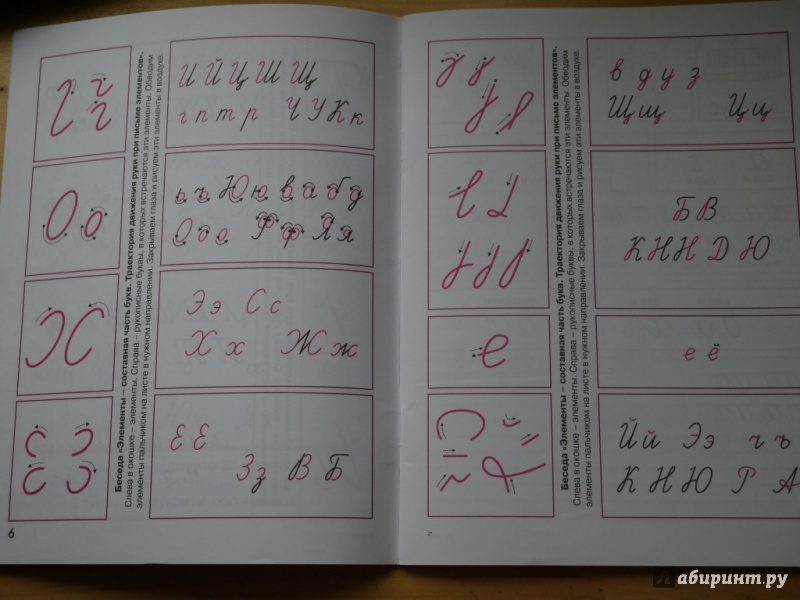 Беседа «Элементы – составная часть букв. Траектория движения руки при письме элементов».
Слева в окошке – элементы. Справа – рукописные буквы, в которых встречаются эти элементы. Обводим
элементы пальчиком на листе в нужном направлении. Закрываем глаза и рисуем эти элементы в воздухе.
И Й Ц Ш Щ
г п т р Ч У К к
ь ъ Ю ю в а б д
О б о Ф ф Я я
Э э С с
Х х Ж ж
З з В Б
6
Беседа «Элементы – составная часть букв. Траектория движения руки при письме элементов».
Слева в окошке – элементы. Справа – рукописные буквы, в которых встречаются эти элементы. Обводим
элементы пальчиком на листе в нужном направлении. Закрываем глаза и рисуем эти элементы в воздухе.
в д у з
Щ щ Ц ц
Б В
К Н Н Д Ю
е
е ё
Й й Э э ч ъ
К Н Ю Р А
Лабиринт.ру